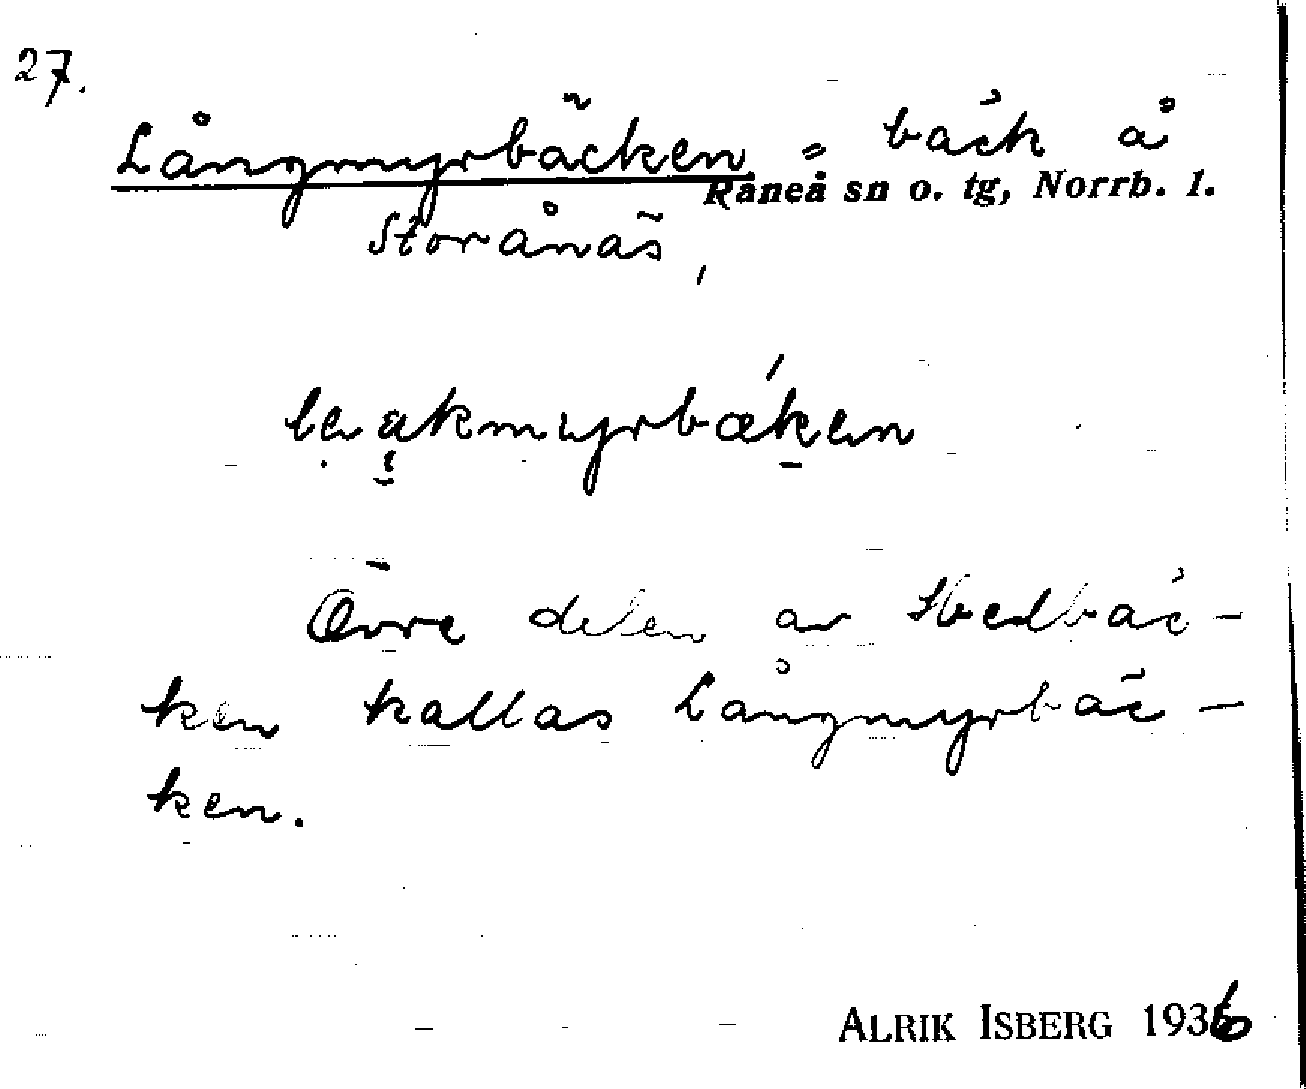 27.
Långmyrbäcken = bäck å
Råneå sn o. tg, Norrb. l.
Storånäs,
Övre delen av Hedbäc-
ken kallas Långmyrbäc-
ken.
ALRIK ISBERG 1936